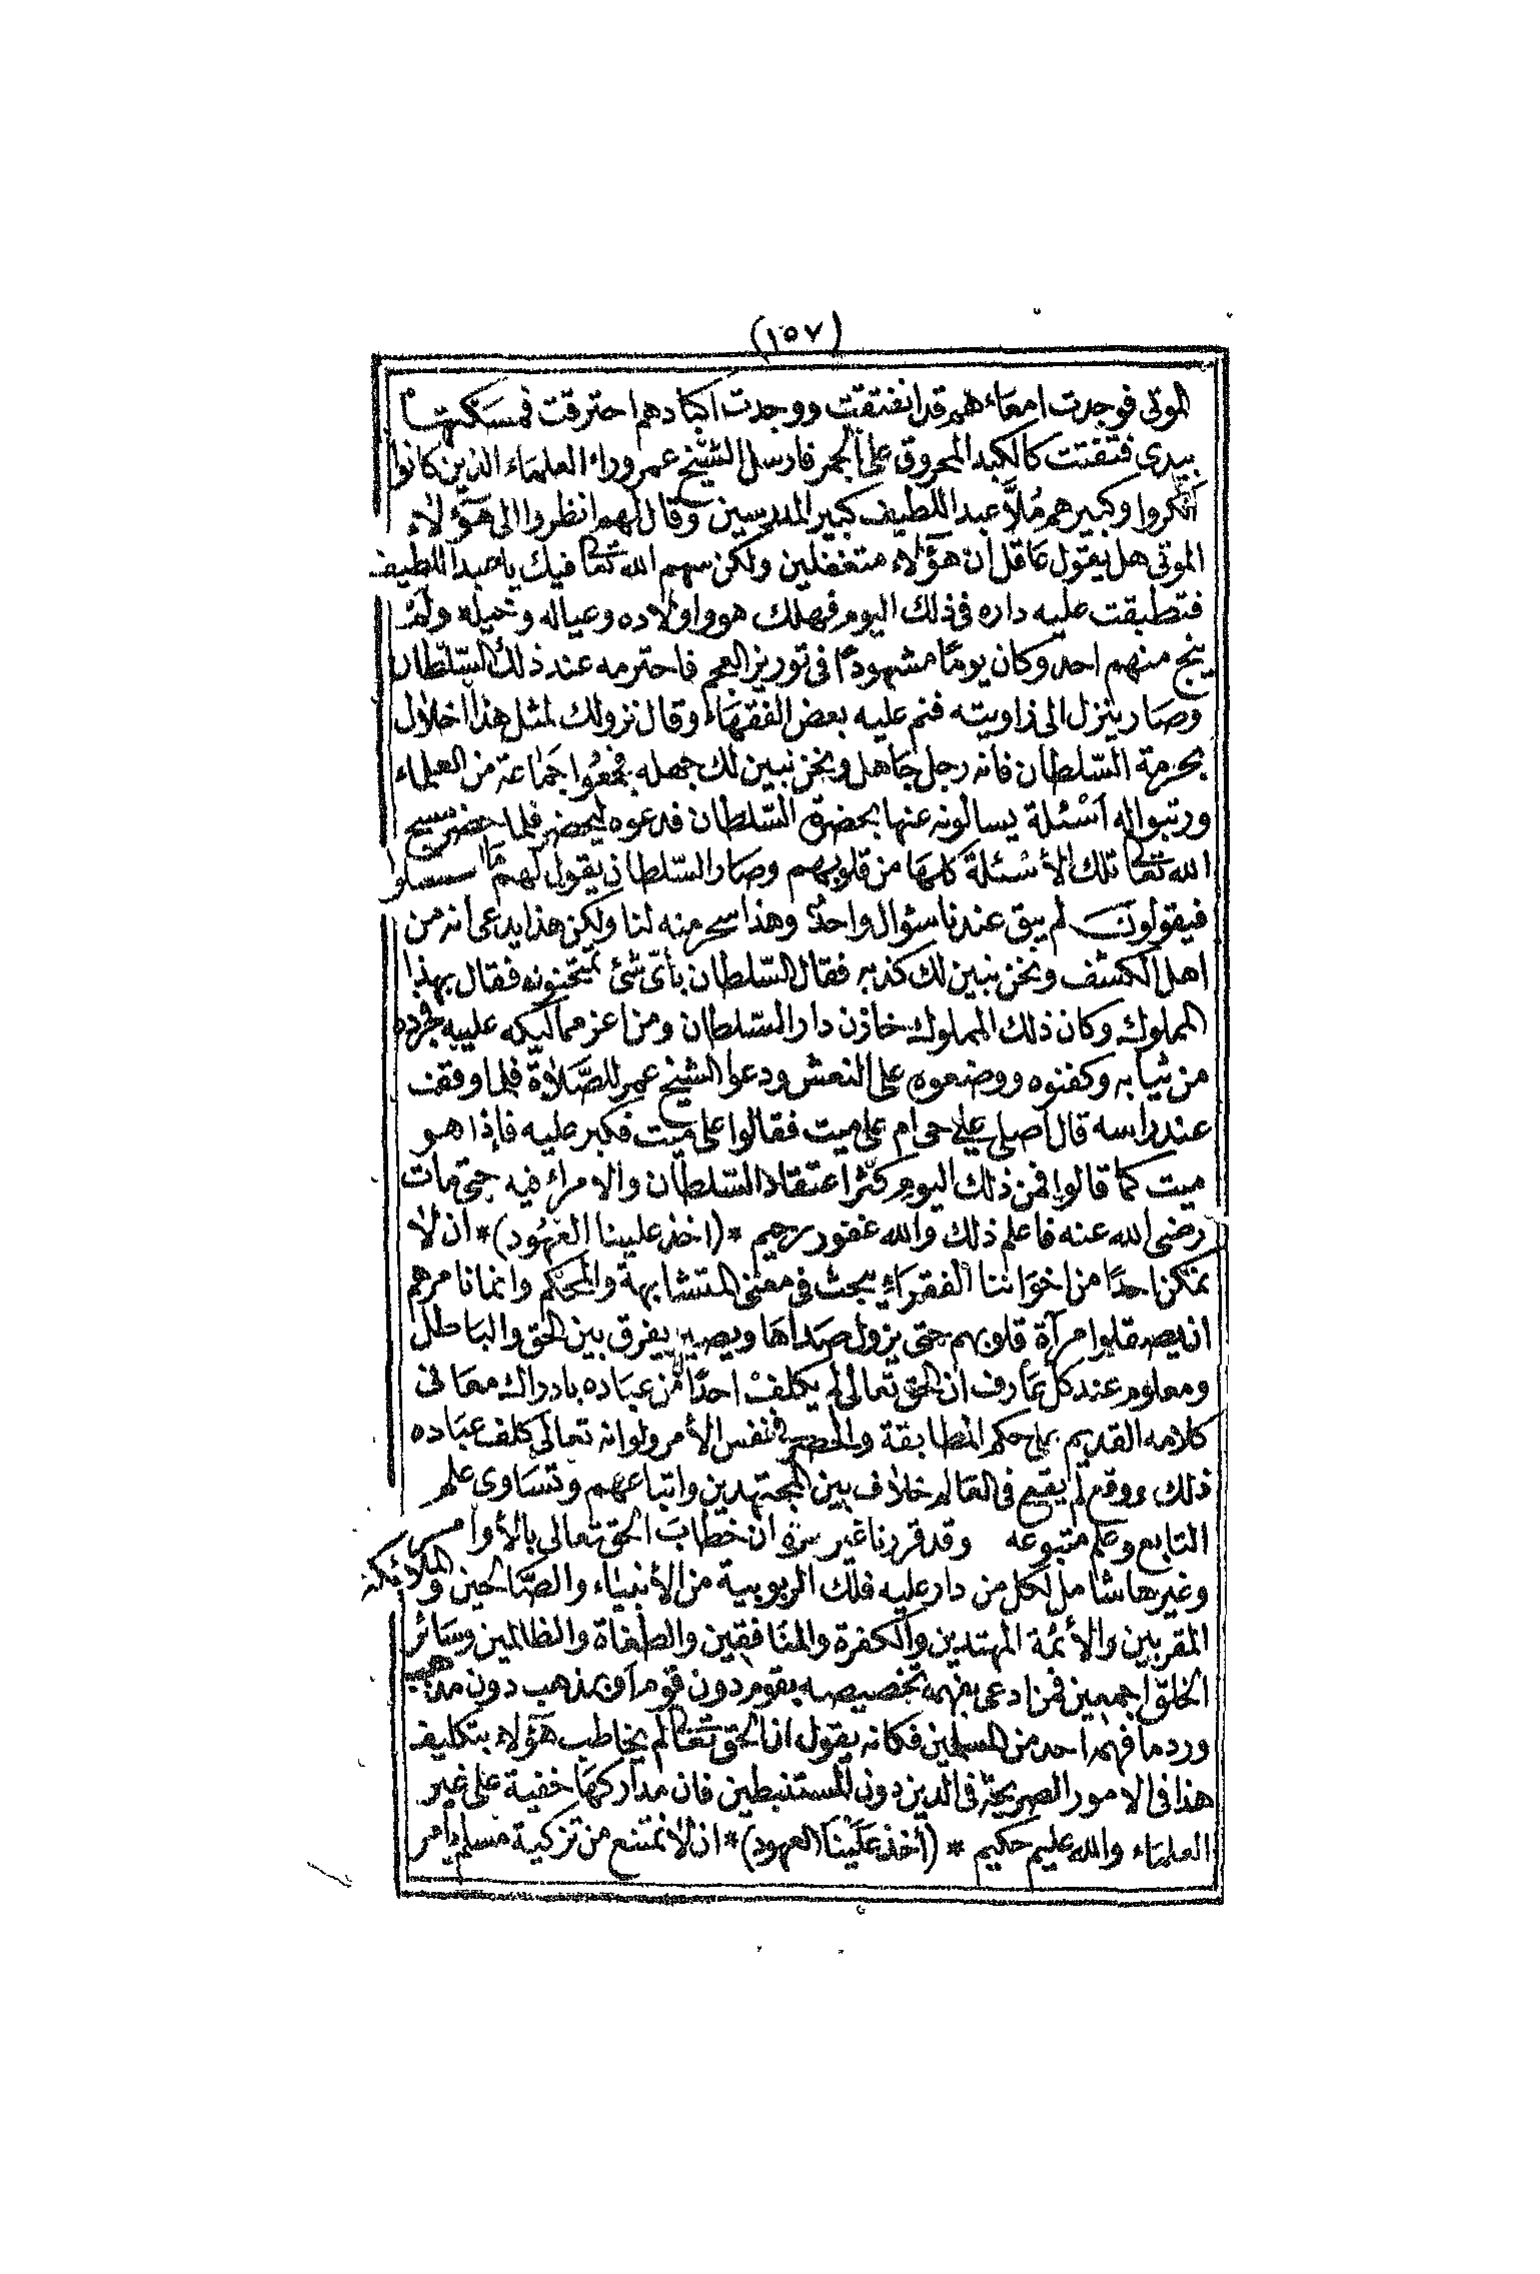 (١٥٧)
الموتى فوجدت امعاءهم قد انفتقت ووجدت اكبادهم احترقت فمسكتها
بيدى فتفتت كالكبد المحروق على الجمر فارسل الشيخ عمر وراء العلماء الذين كانوا
انكروا وكبيرهم مُلّا عبد اللطيف كبير المدرسين وقال لهم انظروا الى هؤلاء
الموتى هل يقول عاقل ان هؤلاء متغفلين ولكن سهم الله تعا فيك يا عبد اللطيف
فتطبقت عليه داره فى ذلك اليوم فهلك هو واولاده وعياله وخيله ولم
ينج منهم احد وكان يومًا مشهودًا فى توريز العجم فاحترمه عند ذلك السّلطان
وصار ينزل الى زاويته فنم عليه بعض الفقهاء وقال نزولك لمثل هذا اخلال
بحرمة السّلطان فانه رجل جاهل ونحن نبين لك جهله فجمعُوا جماعة من العلماء
ورتبوا له اَسْئلة يسالونه عنها بحضرة السّلطان فدعوه ليحضر فلما حضر مسح
الله تعا تلك الأسْئلَة كلها من قلوبهم وصار السّلطان يقول لهم ما اسسلوا
فيقولون لم يبق عندنا سؤال واحدٌ وهذا سحر منه لنا ولكن هذا يدعى انه من
اهل الكشف ونحن نبين لك كذبه فقال السّلطان بأىّ شئ تمتحنونه فقال بهذا
المملوك وكان ذلك المملوك خازن دار السّلطان ومن اعز مماليكه عليه فجرده
من ثيابه وكفنوه ووضعوه على النعش ودعوا الشيخ عمر للصَّلاوة فلما وقف
عند راسه قال اصلى على حى ام على ميت فقالوا على ميت فكبر عليه فإذا هو
ميت كما قالوا فمن ذلك اليوم كثر اعتقاد السّلطان والامراء فيه حتى مات
رضى الله عنه فاعلم ذلك والله غفور رحيم * (اخذ علينا العهُود) * ان لا
نمكن احدًا من اخوَاننا الفقراء يبحث فى معنى المتشابهة والمحكم وانما نامرهم
ان يصقلوا مرآة قلوبهم حتى يزول صداها ويصير يفرق بين الحق والباطل
ومعلوم عند كل عارف ان الحق تعالى لم يكلفْ احدًا من عباده بادراك معانى
كلامه القديم على حكم المطابقة والحصر فى نفس الأمر ولو انه تعالى كلف عبَاده
ذلك ووقع لم يقع فى العالم خلاف بين المجتهدين واتباعهم وتسَاوى علم
التابع وعلم متبوعه وقد قررنا غير مرة ان خطابَ الحق تعالى بالأوامر
وغيرها شامل لكل من دار عليه فلك الربوبية من الأنبياء والصَّالحين والملائكة
المقربين والأئمة المهتدين والكفرة والمنافقين والطغاة والظالمين وسَائر
الخلق اجمعين فمن ادعى بفهمه تخصيصه بقوم دون قوم او بمذهب دون مذهب
ورد ما فهمه احد من المسلمين فكانه يقول ان الحق تعا لم يخاطب هَؤلاء بتكليف
هذا فى الامور الصريحة فى الدين دون المستنبطين فان مداركها خفية على غير
العلماء والله عليم حكيم * (أخذ عَلَيْنَا العهود) * ان لا نمتنع من تزكية مسلم يأمر